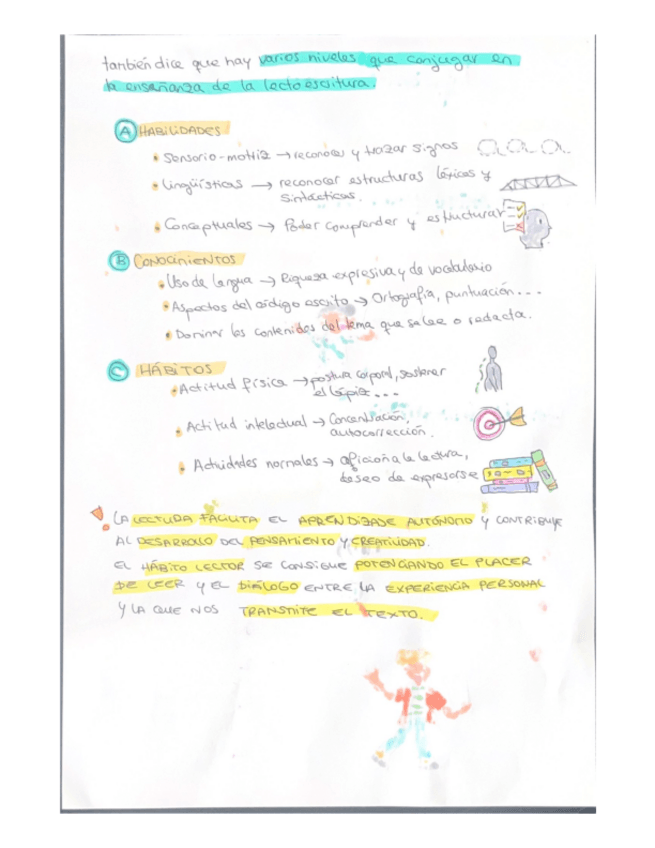 también dice que hay varios niveles que conjugar en
la enseñanza de la lectoescritura.
A HABILIDADES
• Sensorio-motriz → reconocer y trazar signos
• Lingüísticas → reconocer estructuras léxicas y
sintácticas.
• Conceptuales → Poder comprender y estructurar
B CONOCIMIENTOS
• Uso de lengua → Riqueza expresiva y de vocabulario
• Aspectos del código escrito → Ortografía, puntuación...
• Dominar los contenidos del tema que se lee o redacta.
C HÁBITOS
• Actitud física → postura corporal, sostener
el lápiz...
• Actitud intelectual → Concentración,
autocorrección.
• Actividades normales → afición a la lectura,
deseo de expresarse
! LA LECTURA FACILITA EL APRENDIZADE AUTÓNOMO Y CONTRIBUYE
AL DESARROLLO DEL PENSAMIENTO Y CREATIVIDAD.
EL HÁBITO LECTOR SE CONSIGUE POTENCIANDO EL PLACER
DE LEER Y EL DIÁLOGO ENTRE LA EXPERIENCIA PERSONAL
Y LA QUE NOS TRANSMITE EL TEXTO.